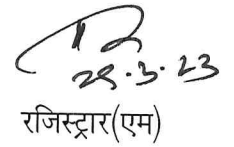 29.3.23
रजिस्ट्रार(एम)